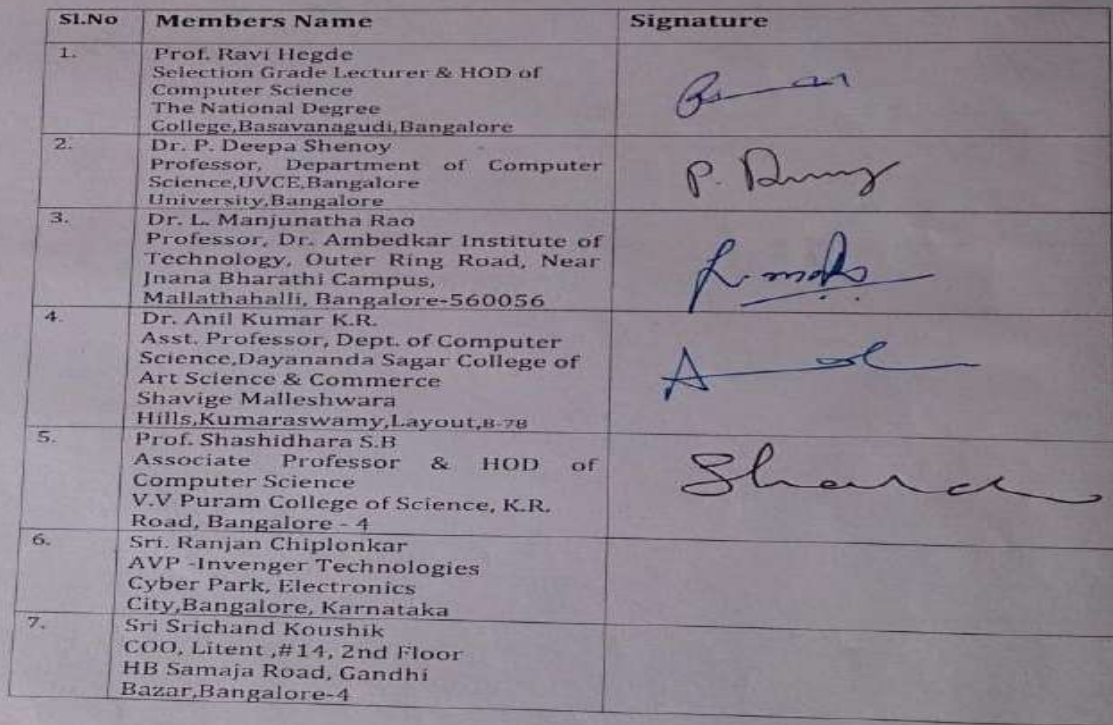 Sl.No Members Name Signature
1. Prof. Ravi Hegde
Selection Grade Lecturer & HOD of
Computer Science
The National Degree
College,Basavanagudi,Bangalore
2. Dr. P. Deepa Shenoy
Professor, Department of Computer
Science,UVCE,Bangalore
University,Bangalore
P.
3. Dr. L. Manjunatha Rao
Professor, Dr. Ambedkar Institute of
Technology, Outer Ring Road, Near
Jnana Bharathi Campus,
Mallathahalli, Bangalore-560056
4. Dr. Anil Kumar K.R.
Asst. Professor, Dept. of Computer
Science,Dayananda Sagar College of
Art Science & Commerce
Shavige Malleshwara
Hills,Kumaraswamy,Layout,B-78
5. Prof. Shashidhara S.B
Associate Professor & HOD of
Computer Science
V.V Puram College of Science, K.R.
Road, Bangalore - 4
6. Sri. Ranjan Chiplonkar
AVP -Invenger Technologies
Cyber Park, Electronics
City,Bangalore, Karnataka
7. Sri Srichand Koushik
COO, Litent ,#14, 2nd Floor
HB Samaja Road, Gandhi
Bazar,Bangalore-4